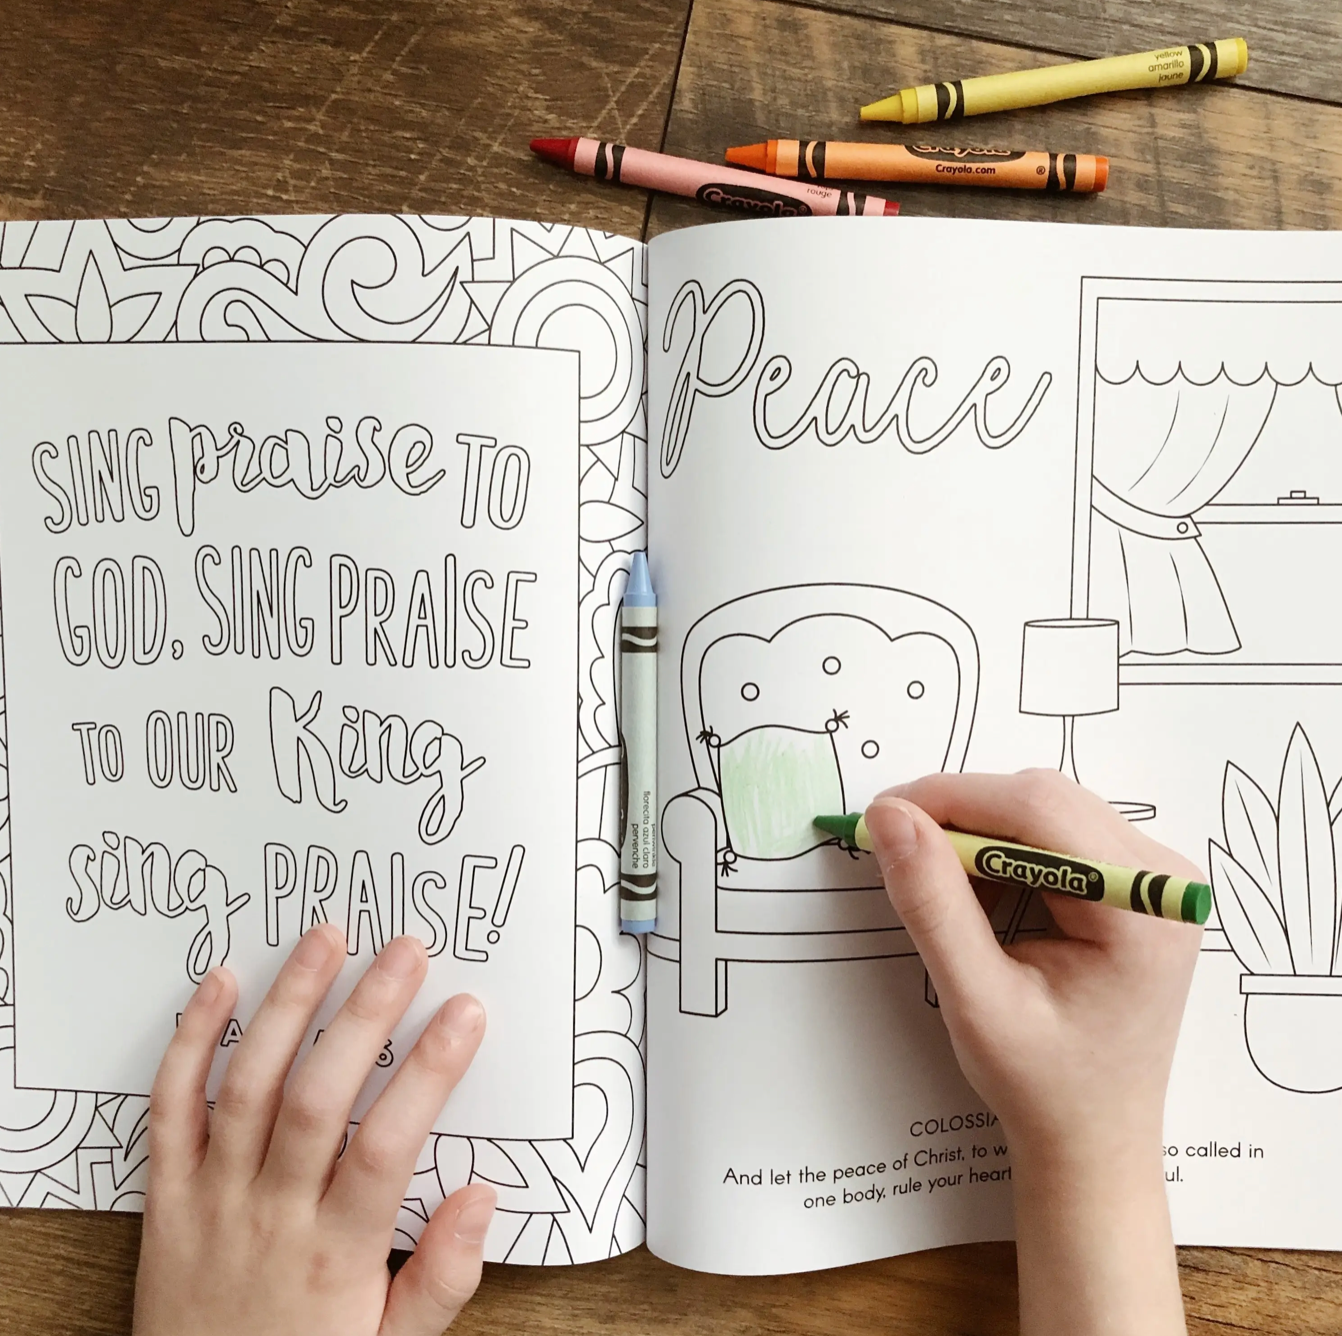 yellow
amarillo
jaune
Crayola
Crayola.com
®
rouge
Crayola
SING praise TO
GOD, SING PRAISE
TO OUR King
sing PRAISE!
Peace
florecita azul claro
pervenche
Crayola®
COLOSSIA
And let the peace of Christ, to w so called in
one body, rule your heart ul.